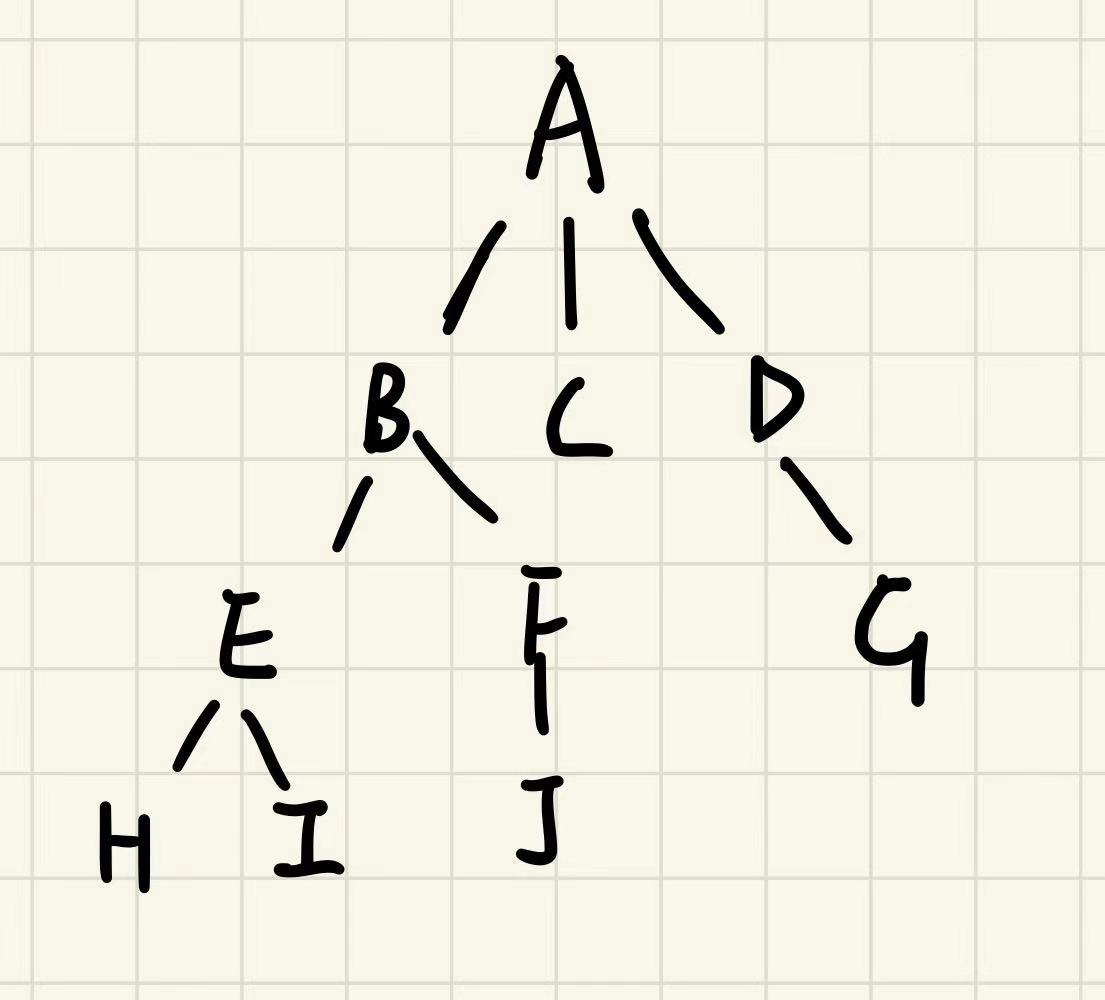 A
B C D
E F G
H I J